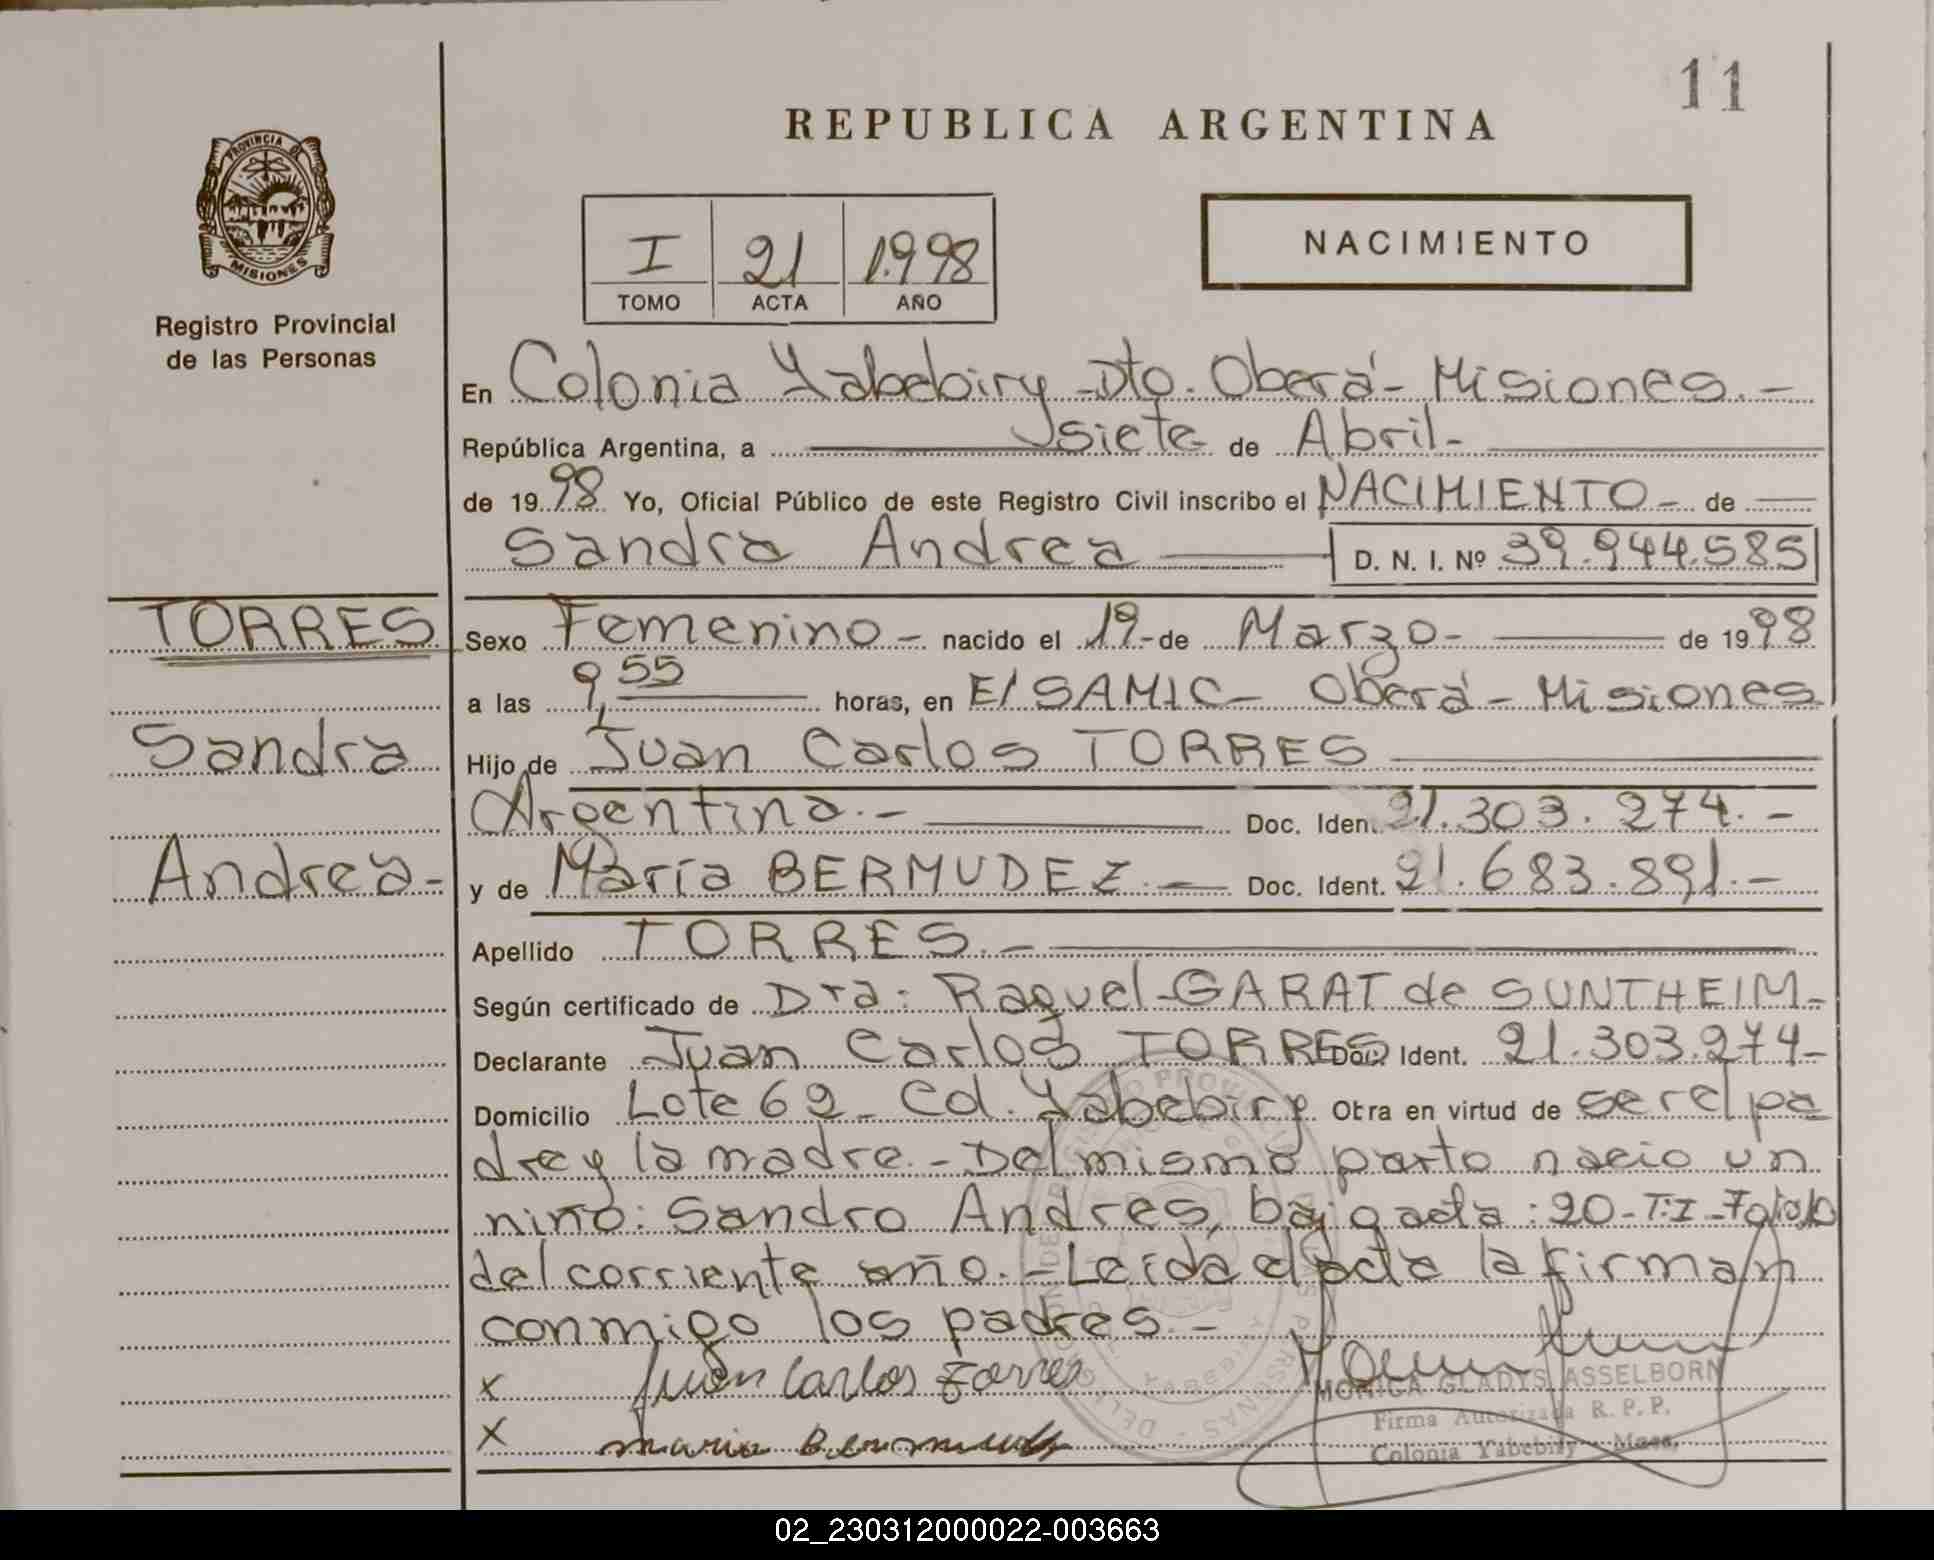 11
REPUBLICA ARGENTINA
PROVINCIA DE MISIONES
Registro Provincial
de las Personas
I 21 1.998
TOMO ACTA AÑO
NACIMIENTO
En Colonia Yabebiry - Dto. Oberá - Misiones. -
República Argentina, a siete de Abril -
de 1998 Yo, Oficial Público de este Registro Civil inscribo el NACIMIENTO - de
Sandra Andrea D. N. I. Nº 39.944.585
TORRES
Sandra
Andrea -
Sexo Femenino - nacido el 19 - de Marzo - de 1998
a las 9,55 horas, en El SAMIC - Oberá - Misiones
Hijo de Juan Carlos TORRES
Argentina. - Doc. Iden. 21.303.274. -
y de María BERMUDEZ. - Doc. Ident. 21.683.891. -
Apellido TORRES. -
Según certificado de Dra: Raquel - GARAT de SUNTHEIM -
Declarante Juan Carlos TORRES Doc. Ident. 21.303.274 -
Domicilio Lote 62 - Col. Yabebiry Obra en virtud de ser el pa
dre y la madre. - Del mismo parto nacio un
niño: Sandro Andres, bajo acta: 20 - T: I - Folio 10
del corriente año. - Leida el acta la firman
conmigo los padres. -
x Juan Carlos Torres
x Maria Bermudez
MONICA GLADYS ASSELBORN
Firma Autorizada R. P. P.
Colonia Yabebiry - Mnes.
02_230312000022-003663